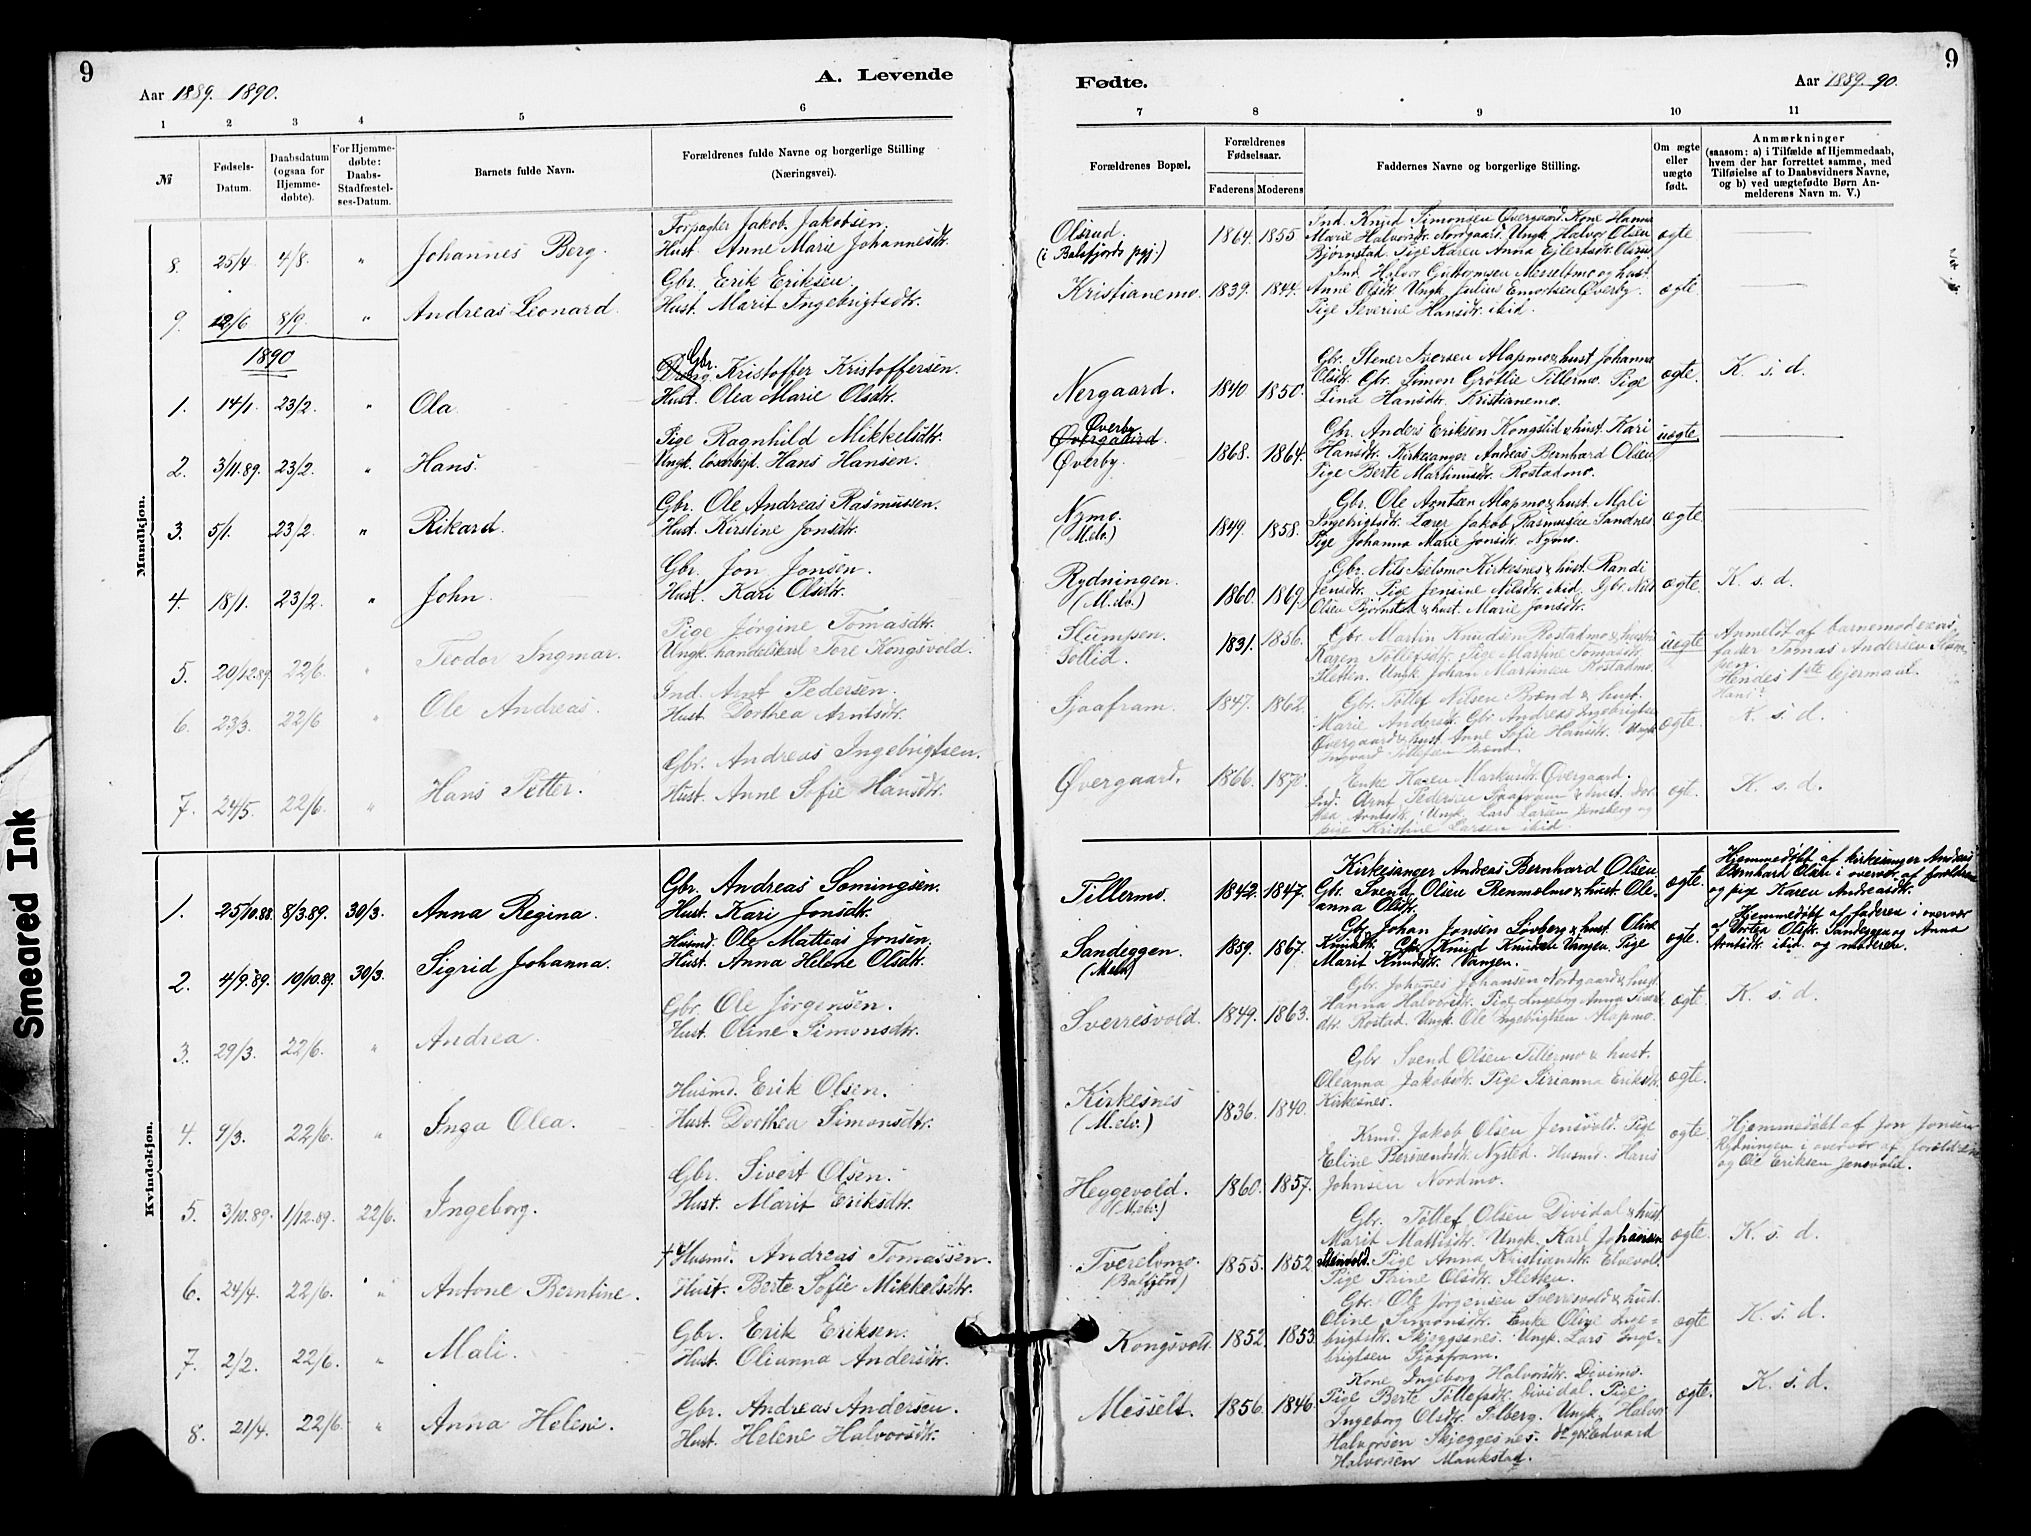 9
A. Levende
Aar 1889. 1890.
1 2 3 4 5 6
№
Fødsels-
Datum.
Daabsdatum
(ogsaa for
Hjemme-
døbte).
For Hjemme-
døbte:
Daabs-
Stadfæstel-
ses-Datum.
Barnets fulde Navn.
Forældrenes fulde Navne og borgerlige Stilling
(Næringsvei).
Mandkjøn.
Forpagter Jakob Jakobsen.
8. 25/4. 4/8. " Johannes Berg. Hust. Anne Marie Johannesdtr.
Gbr. Erik Eriksen.
9. 12/6 8/9. " Andreas Leonard. Hust. Marit Ingebrigtsdtr.
1890
Gbr.
Kristoffer Kristoffersen.
1. 14/1. 23/2. " Ola. Hust. Olea Marie Olsdtr.
Pige Ragnhild Mikkelsdtr.
2. 3/11.89. 23/2. " Hans. Ungk. løsarbeid. Hans Hansen.
Gbr. Ole Andreas Rasmussen.
3. 5/1. 23/2. " Rikard. Hust. Kirstine Jonsdtr.
Gbr. Jon Jonsen.
4. 18/1. 23/2. " John. Hust. Kari Olsdtr.
Pige Jørgine Tomasdtr.
5. 20/12.89. 22/6. " Teodor Ingmar. Ungk. handelskarl Tore Kongsvold.
Ind. Arnt Pedersen.
6. 23/3. 22/6 " Ole Andreas. Hust. Dorthea Arntsdtr.
Gbr. Andreas Ingebrigtsen.
7. 24/5. 22/6. " Hans Petter. Hust. Anne Sofie Hansdtr.
Kvindekjøn.
Gbr. Andreas Somingsen.
1. 25/10.88. 8/3.89. 30/3. Anna Regina. Hust. Kari Jonsdtr.
Husmd. Ole Mattias Jonsen.
2. 4/9.89. 10/10.89. 30/3. Sigrid Johanna. Hust. Anna Helene Olsdtr.
Gbr. Ole Jørgensen.
3. 29/3. 22/6. " Andrea. Hust. Oline Simonsdtr.
Husmd. Erik Olsen.
4. 9/3. 22/6. " Inga Olea. Hust. Dorthea Simonsdtr.
Gbr. Sivert Olsen.
5. 3/10.89. 1/12.89. 22/6. Ingeborg. Hust. Marit Eriksdtr.
Husmd. Andreas Tomassen.
6. 24/4. 22/6. " Antone Berntine. Hust. Berte Sofie Mikkelsdtr.
Gbr. Erik Eriksen.
7. 2/2. 22/6. " Mali. Hust. Olianna Andersdtr.
Gbr. Andreas Andersen.
8. 21/4. 22/6. " Anna Helene. Hust. Helene Halvorsdtr.
Smeared Ink
9
Fødte.
Aar 1889.-90.
7 8 9 10 11
Forældrenes Bopæl.
Forældrenes
Fødselsaar.
Faderens Moderens
Faddernes Navne og borgerlige Stilling.
Om ægte
eller
uægte
født.
Anmærkninger
(saasom: a) i Tilfælde af Hjemmedaab,
hvem der har forrettet samme, med
Tilføielse af to Daabsvidners Navne,
og b) ved uægtefødte Børn An-
melderens Navn m. V.)
Olsrud.
(i Balsfjords pgj.)
1864. 1855
Ind. Knud Simonsen Øvergaard. Kone Hanna
Marie Halvorsdtr. Nordgaard. Ungk. Halvor Olsen
Bjørnstad. Pige Karen Anna Eilertsdtr. Olsrud
ægte
Kristianemo. 1839. 1844.
Ind. Halvor Guttormsen Messeltmo og hust.
Anne Olsdtr. Ungk. Julius Emortsen Øverby.
Pige Severine Hansdtr. ibid.
ægte.
Nergaard. 1840 1850.
Gbr. Stener Iversen Alapmo & hust. Johanna
Olsdtr. Gbr. Simon Grøtlie Tillermo. Pige
Lina Hansdtr. Kristianemo.
ægte. K. s. d.
Øverby
Øvergaard.
Øverby. 1868. 1864.
Gbr. Anders Eriksen Kongslid & hust. Kari
Hansdtr. Kirkesanger Andreas Bernhard Olsen
Pige Berte Martinusdtr. Rostadmo.
uægte.
Nymo.
(M.elv.)
1849. 1858.
Gbr. Ole Arntsen Alapmo & hust. Mali
Ingebrigtsdtr. Lærer Jakob Rasmusen Sandnes
Pige Johanna Marie Jonsdtr. Nymo.
ægte
Rydningen.
(M.elv.)
1860. 1869.
Gbr. Nils Iselvmo Kirkesnes & hust. Randi
Jensdtr. Pige Jensine Nilsdtr. ibid. Gbr. Nils
Olsen Bjørnstad & hust. Marie Jonsdtr.
ægte. K. s. d.
Slumpen.
Sollid.
1831. 1856.
Gbr. Martin Knudsen Rostadmo & hustru
Karen Tollefsdtr. Pige Martine Tomasdtr.
Sletten. Ungk. Johan Martinsen Rostadmo.
uægte
Anmeldt af barnemoderens
fader Tomas Andersen Slum-
pen.
Hendes 1ste lejermaal.
Hans
Sjaafram. 1847. 1862
Gbr. Tollef Nilsen Brænd & hust.
Marie Andersd. Gbr. Andreas Ingebrigtsen
Øvergaard & hust. Anne Sofie Hansdtr. Ungk.
Ingvard Tollefsen Brænd.
ægte. K. s. d.
Øvergaard. 1866. 1870.
Enke Karen Markusdtr. Øvergaard.
Ind. Arnt Pedersen Sjaafram & hust. Dor-
thea Arntsdtr. Ungk. Lars Larsen Jensberg og
pige Kristine Larsen ibid.
ægt. K. s. d.
Tillermo. 1842. 1847.
Kirkesanger Andreas Bernhard Olsen
Gbr. Svend Olsen Renmælmo & hust. Ole-
anna Olsdtr.
ægte.
Hjemmedøbt af kirkesanger Andreas
Bernhard Olsen i overvær af forældrene
og pige Karen Andreasdtr.
Sandeggen.
(Melv.)
1859. 1867.
Gbr. Johan Jonsen Løvberg & hust. Oline
Knudsdtr. Gbr. Knud Knudsen Vangen. Pige
Marit Knudsdtr. Vangen.
ægte.
Hjemmedøbt af faderen i overvær
af Dortea Olsdtr. Sandeggen og Anna
Arntsdtr. ibid. og moderen.
Sverresvold. 1849. 1863.
Gbr. Johanes Johansen Nordgaard & hust.
Hanna Halvorsdtr. Pige Ingeborg Anna Sivert-
dtr. Rostad. Ungk. Ole Ingebrigtsen Alapmo.
ægte. K. s. d.
Kirkesnes
(M.elv.)
1836. 1840.
Gbr Svend Olsen Tillermo & hust.
Oleanna Jakobsdtr. Pige Sirianna Eriksdtr.
Kirkesnes.
ægte.
Heggevold.
(M.elv.)
1860. 1857.
Krmd. Jakob Olsen Jensvold. Pige
Eline Bersvendsdtr. Nysted. Husmd. Hans
Johnsen Nordmo.
ægte
Hjemmedøbt af Jon Jonsen
Rydningen i overvær af forældrene
og Ole Eriksen Jensvold.
Tverelvmo.
(Balsfjord)
1855. 1852
Gbr. Tollef Olsen Dividal & hust.
Marit Mattisdtr. Ungk. Karl Johansen
Stenvold. Pige Anna Kristiansdtr. Elvevold.
Pige Thrine Olsdtr. Sletten.
ægte. K. s. d.
Kongsvold. 1852. 1853.
Gbr. Ole Jørgensen Sverresvold & hust.
Oline Simonsdtr. Enke Oline Inge-
brigtsdtr. Skjeggesnes. Ungk. Lars Inge-
brigtsen Sjaafram.
ægte K. s. d.
Messelt. 1856. 1846.
Kone Ingeborg Halvorsdtr. Divimo.
Pige Berte Tollefsdtr. Dividal. Pige
Ingeborg Olsdtr. Solberg. Ungk. Halvor
Halvorsen Skjeggesnes. Edvard
Halvorsen Maukstad.
ægte. K. s. d.